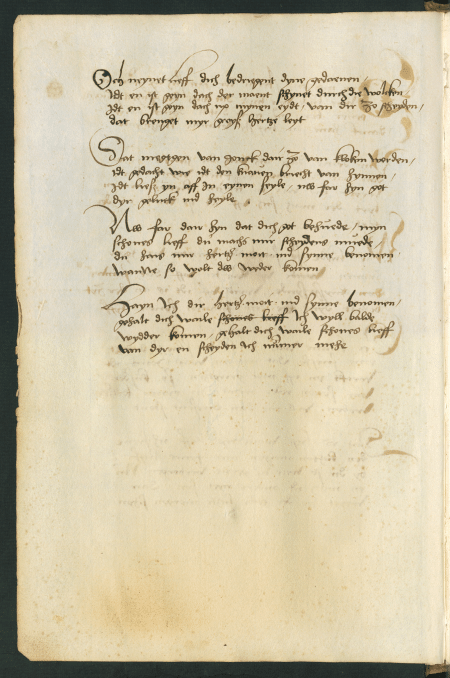 Och neynet lieff dich bedriegent dyne gedacnen
idt en ist geyn dach der maent schynet durch die wolcken
idt en ist geyn dach up mynen eydt / van dir zo scheyden /
dat brenget myr groiß hertze leyt
Dat megtgen van danr zo van werden /
idt gedacht wie idt den knauen brecht van hynnen /
idt ließ yn aff In eynen seyle / nw far hyn got
dyr geluck ind heyle
Nw far dair hyn dat dich got behuede / myn
schones lieff du machs mir scheydens muede
du hais mir hertz / moit ind synne benomen
wanne so wolt dw wyder komen
Hayn ich dir hertz moit ind synne benomen /
gehalt dich waile schones lieff Ich wyll balde
wydder komen / gehalt dich waile schones lieff
van dyr en scheyden ich nummer mehe